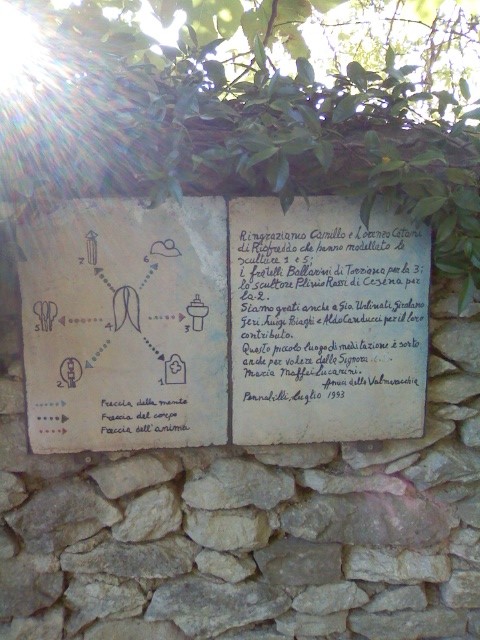 7
6
5
4
3
2
1
Freccia della mente
Freccia del corpo
Freccia dell'anima
Ringraziamo Camillo e Lorenzo Cetani
di Riofreddo che hanno modellato le
sculture 1 e 5;
i fratelli Ballarini di Torriana per la 3;
lo scultore Plinio Rossi di Cesena per
la 2.
Siamo grati anche a Gio. Urbinati, Girolamo
Geri, Luigi Biaghi e Aldo Canducci per il loro
contributo.
Questo piccolo luogo di meditazione è sorto
anche per volere della Signora
Maria Maffei Lucarini.
Amici della Valmarecchia
Pennabilli, Luglio 1993